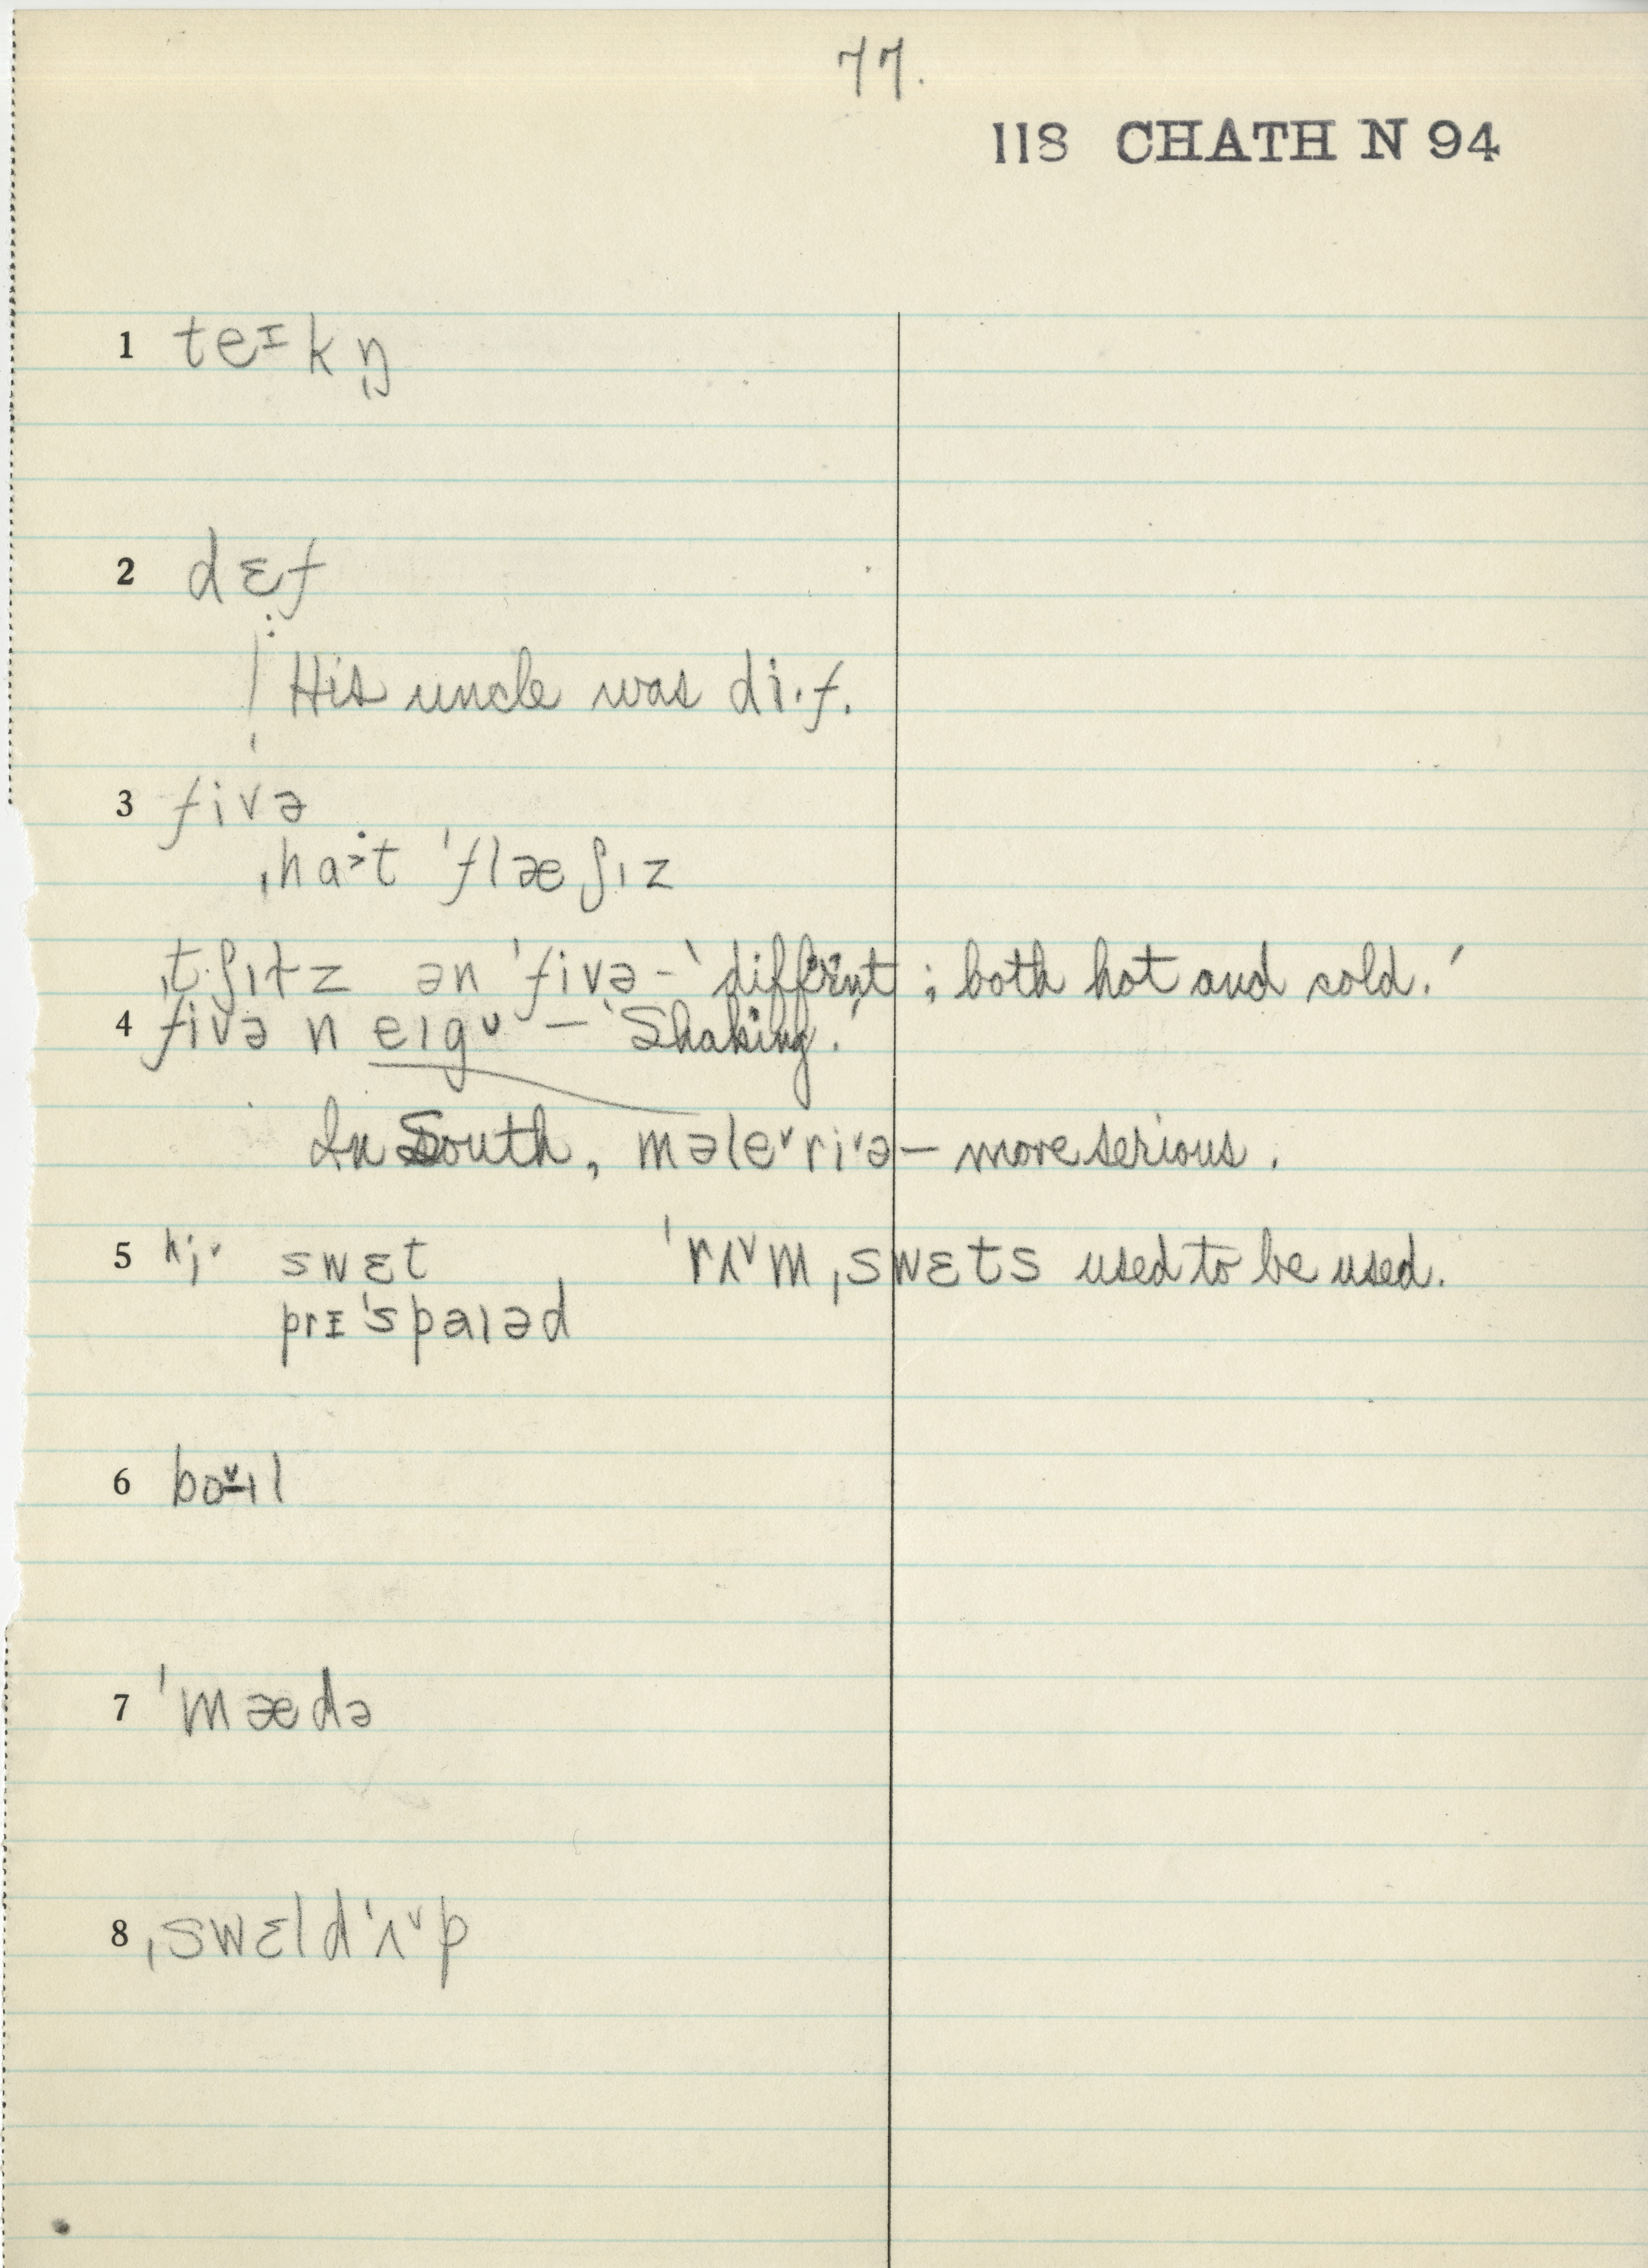 77.
118 CHATH N 94
1 teɪkŋ̩
2 dɛf
⁞ His uncle was di·f.
3 fivə
ˌha˃·t ˈflæʃɪz
ˌtʃɪlz ən ˈfivə – 'different; both hot and cold.'
4 fivə n eɪgᴜ – 'Shaking.'
In South, məleˇriˇə – more serious.
5 hjᵛ swɛt ˈrʌˇm ˌswɛts used to be used.
prɪˈspaɪəd
6 boˇɪl
7 ˈmædə
8 ˌswɛldˈʌˇp